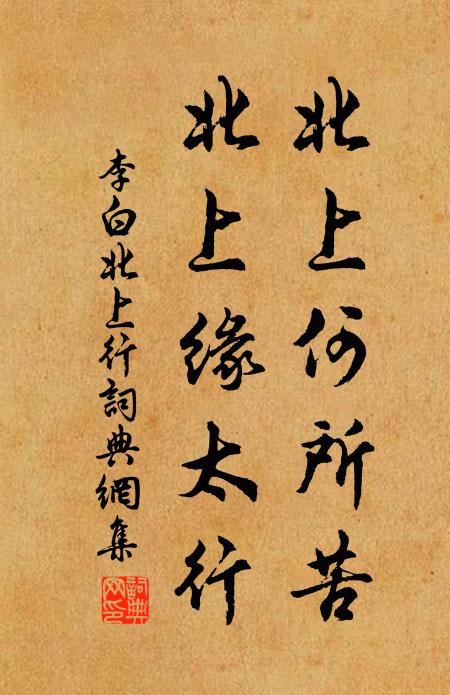 北上何所苦
北上缘太行
李白北上行詞典網集
詞典网印